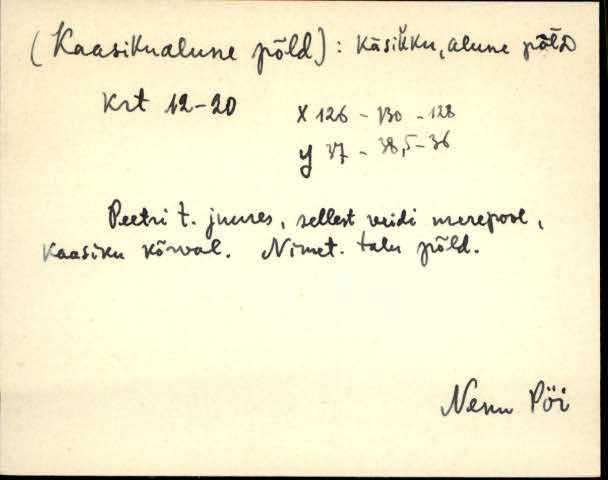 (Kaasikualune põld): käsikku, alune põlD
Krt 12-20 X 126 - 130 - 128
y 37 - 38,5 - 36
Peetri t. juures, sellest veidi merepool,
Kaasiku kõrval. Nimet. talu põld.
Nenu Pöi